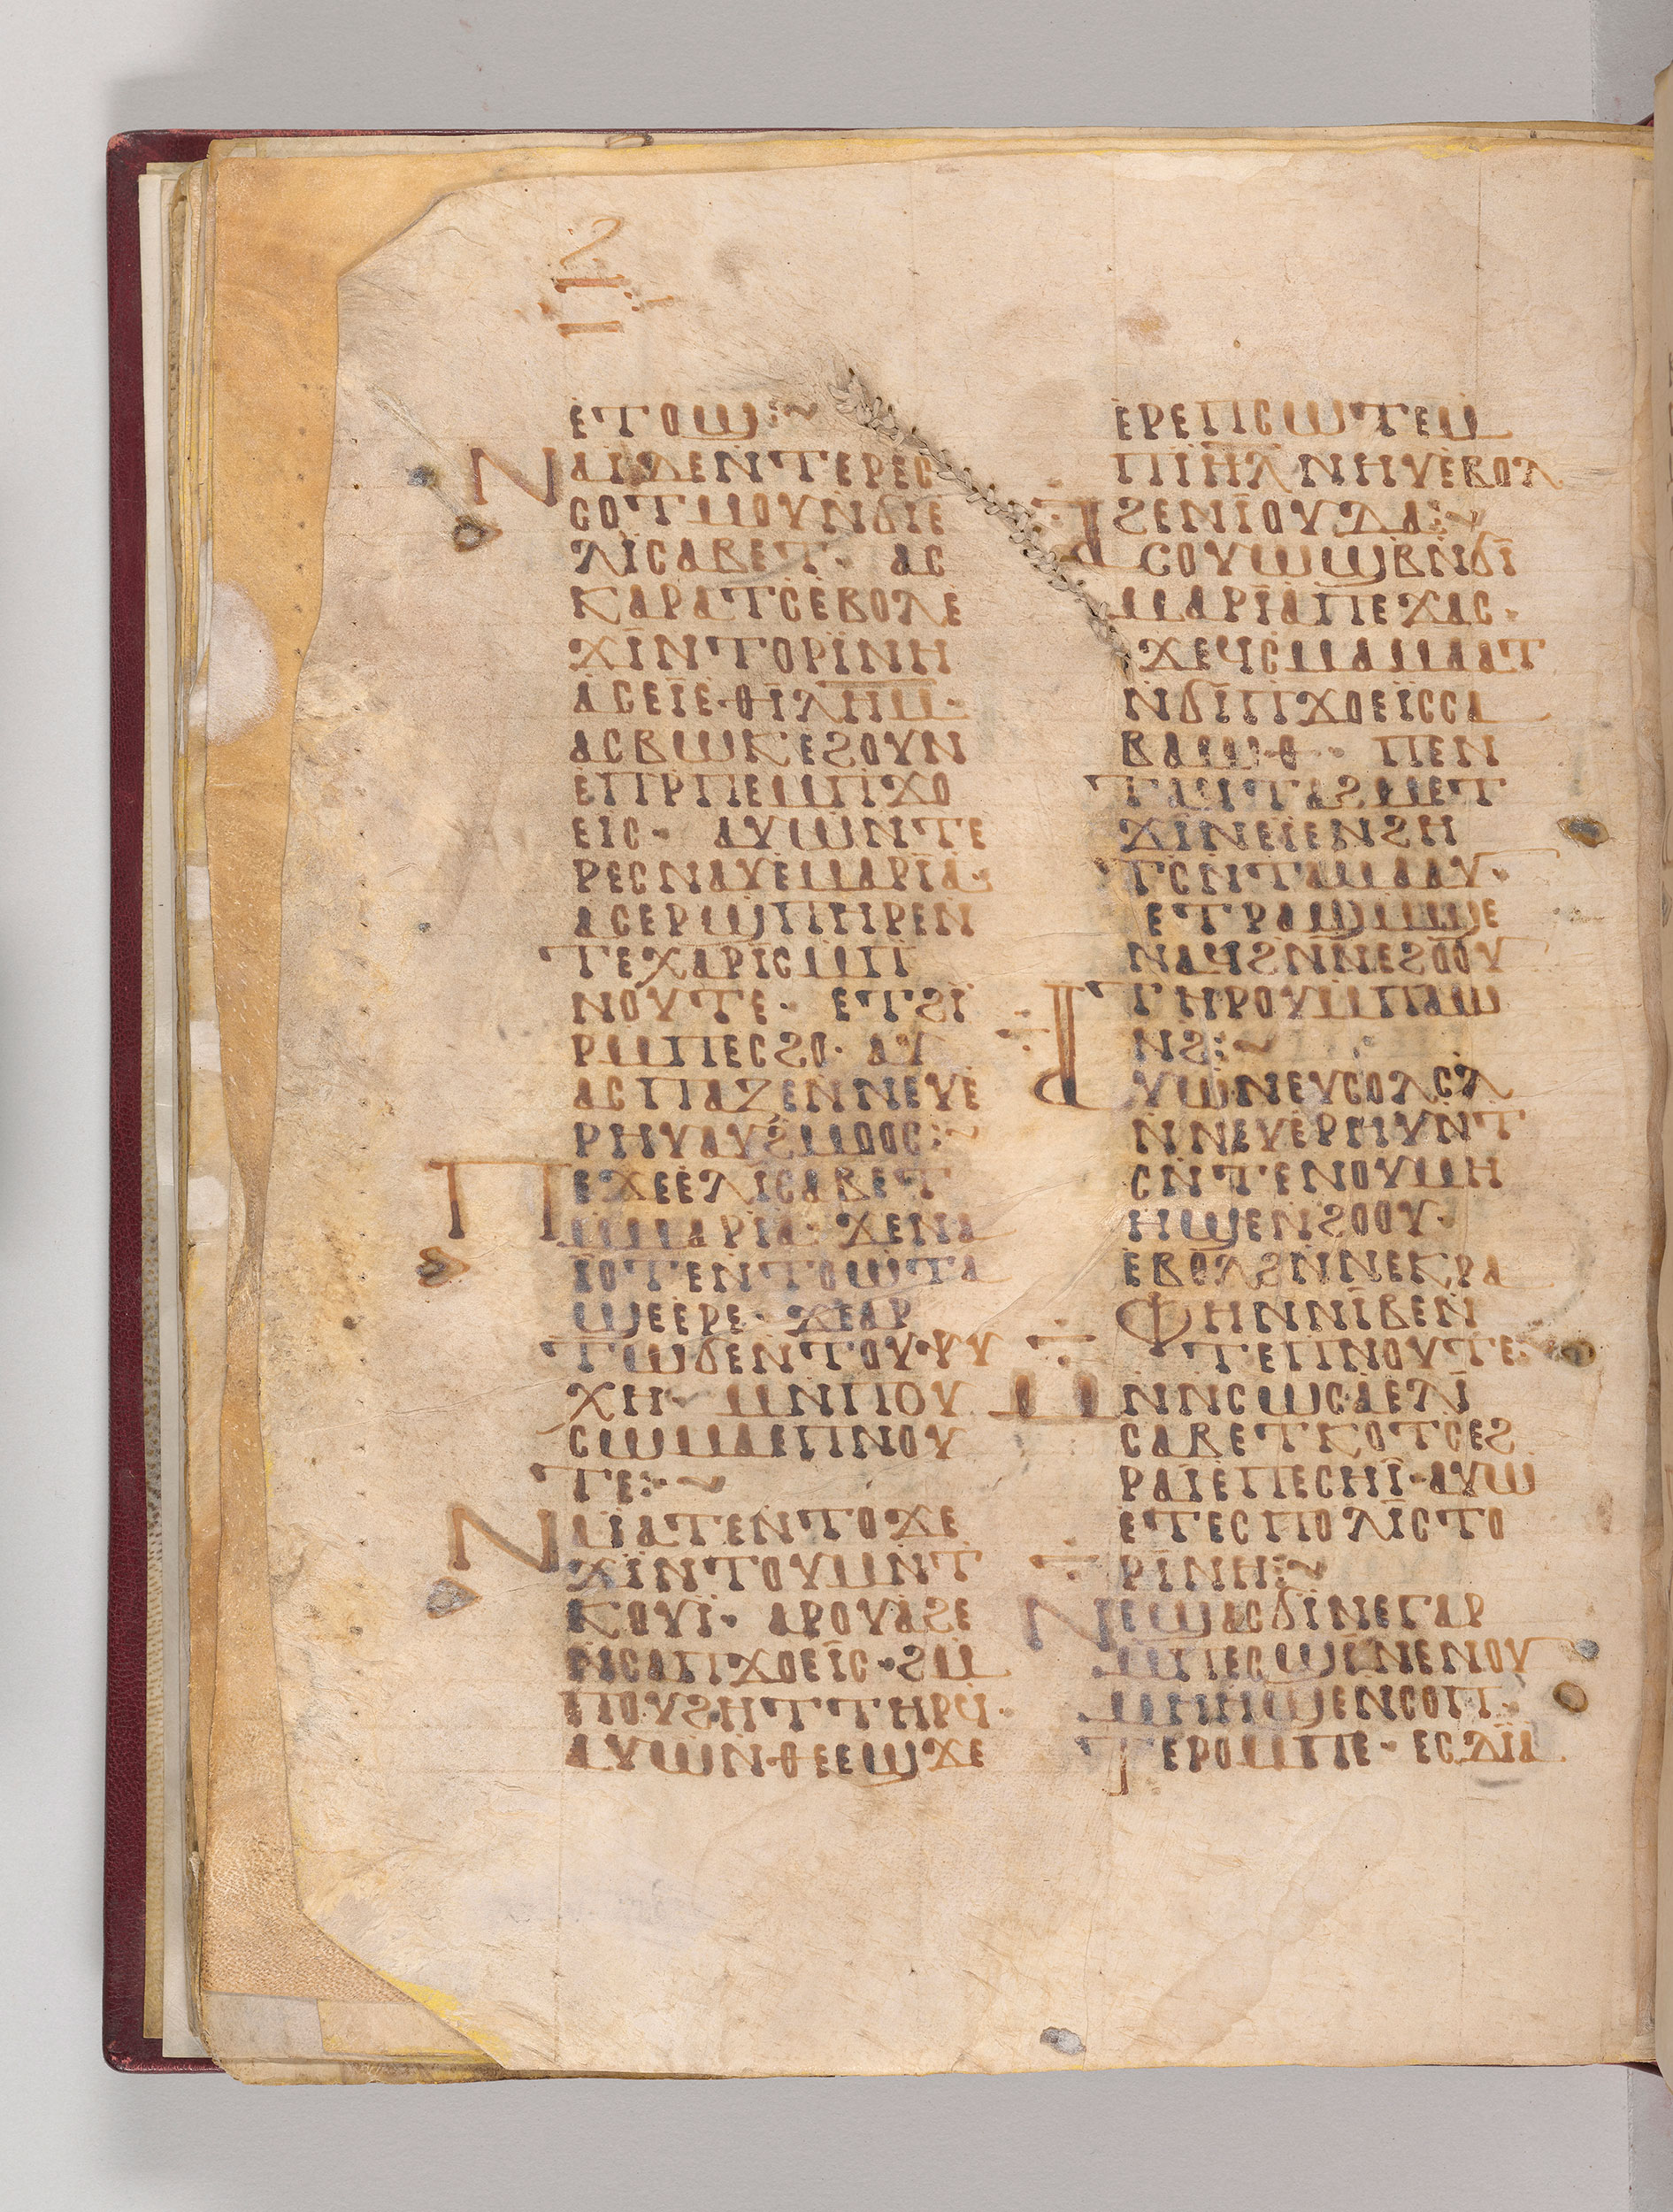 ⲉⲧⲟϣ:~
ⲛⲁⲓ̈ⲇⲉⲛⲧⲉⲣⲉⲥ
ⲥⲟⲧⲙⲟⲩⲛϭⲓⲉ
ⲗⲓ̈ⲥⲁⲃⲉⲧ· ⲁⲥ
ⲕⲁⲣⲁⲧⲥⲉⲃⲟⲗⲉ
ϫⲓⲛⲧⲟⲣⲓⲛⲏ
ⲁⲥⲉⲓ̈ⲉ·ⲑⲓⲗⲏⲙ·
ⲁⲥⲃⲱⲕⲉϩⲟⲩⲛ
ⲉⲡⲣⲡⲉⲙⲡϫⲟ
ⲉⲓⲥ· ⲁⲩⲱⲛⲧⲉ
ⲣⲉⲥⲛⲁⲩⲉⲙⲁⲣⲓⲁ·
ⲁⲥⲉⲣϣⲡⲏⲣⲉⲛ
ⲧⲉⲭⲁⲣⲓⲥⲙⲡ
ⲛⲟⲩⲧⲉ· ⲉⲧϩⲓ
ⲣⲙⲡⲉⲥϩⲟ· ⲁⲩ
ⲁⲥⲡⲁⲍⲉⲛⲛⲉⲩⲉ
ⲣⲏⲩⲁⲩϩⲙⲟⲟⲥ:~
ⲡⲉϫⲉⲉⲗⲓⲥⲁⲃⲉⲧ
ⲙⲙⲁⲣⲓⲁ· ϫⲉⲛⲁ
ⲓ̈ⲟⲧⲉⲛⲧⲟⲱⲧⲁ
ϣⲉⲉⲣⲉ· ϫⲉⲁⲣ
ⲧⲱϭⲉⲛⲧⲟⲩⲯⲩ
ⲭⲏ· ⲙⲛⲡⲟⲩ
ⲥⲱⲙⲁⲉⲡⲛⲟⲩ
ⲧⲉ:·~
ⲛⲁⲓ̈ⲁⲧⲉⲛⲧⲟϫⲉ
ϫⲓⲛⲧⲟⲩⲙⲛⲧ
ⲕⲟⲩⲓ̈· ⲁⲣⲟⲩⲁϩⲉ
ⲛⲥⲁⲡϫⲟⲉⲓⲥ·ϩⲙ
ⲡⲟⲩϩⲏⲧⲧⲏⲣϥ·
ⲁⲩⲱⲛ·ⲑⲉⲉϣϫⲉ
ⲉⲣⲉⲡⲥⲱⲧⲉⲙ
ⲡⲓⲏⲗⲛⲏⲩⲉⲃⲟⲗ
ϩⲉⲛⲓ̈ⲟⲩⲇⲁ:~
ⲁⲥⲟⲩⲱϣⲃⲛϭⲓ
ⲙⲁⲣⲓⲁⲡⲉϫⲁⲥ·
ϫⲉϥⲥⲙⲁⲙⲁⲁⲧ
ⲛϭⲓⲡϫⲟⲉⲓ̈ⲥⲥⲁ
ⲃⲁⲱⲑ· ⲡⲉⲛ
ⲧⲁϥⲧⲁϩⲙⲉⲧ
ϫⲓⲛⲉⲓⲉⲛϩⲏ
ⲧⲥⲛⲧⲁⲙⲁⲁⲩ·
ⲉⲧⲣⲁϣⲙϣⲉ
ⲛⲁϥϩⲛⲛⲉϩⲟⲟⲩ
ⲧⲏⲣⲟⲩⲙⲡⲁⲱ
ⲛϩ:~
ⲁⲩⲱⲛⲉⲩⲥⲟⲗⲥⲗ
ⲛⲛⲉⲩⲉⲣⲏⲩⲛⲧ
ⲥⲛⲧⲉⲛⲟⲩⲙⲏ
ⲏϣⲉⲛϩⲟⲟⲩ·
ⲉⲃⲟⲗϩⲛⲛⲉⲕⲣⲁ
ⲫⲏⲛⲛⲓⲃⲉⲛ
ⲧⲉⲡⲛⲟⲩⲧⲉ:~
ⲙⲛⲛⲥⲱⲥⲁⲉⲗⲓ
ⲥⲁⲃⲉⲧⲕⲟⲧⲥⲉϩ
ⲣⲁⲓ̈ⲉⲡⲉⲥⲏⲓ̈·ⲁⲩⲱ
ⲉⲧⲉⲥⲡⲟⲗⲓⲥⲧⲟ
ⲣⲓⲛⲏ:~
ⲛⲉϣⲁⲥϭⲓⲛⲉⲅⲁⲣ
ⲙⲡⲉⲥϣⲓⲛⲉⲛⲟⲩ
ⲙⲏⲏϣⲉⲛⲥⲟⲡ·
ⲧⲉⲣⲟⲙⲡⲉ· ⲉⲥⲇⲓⲁ